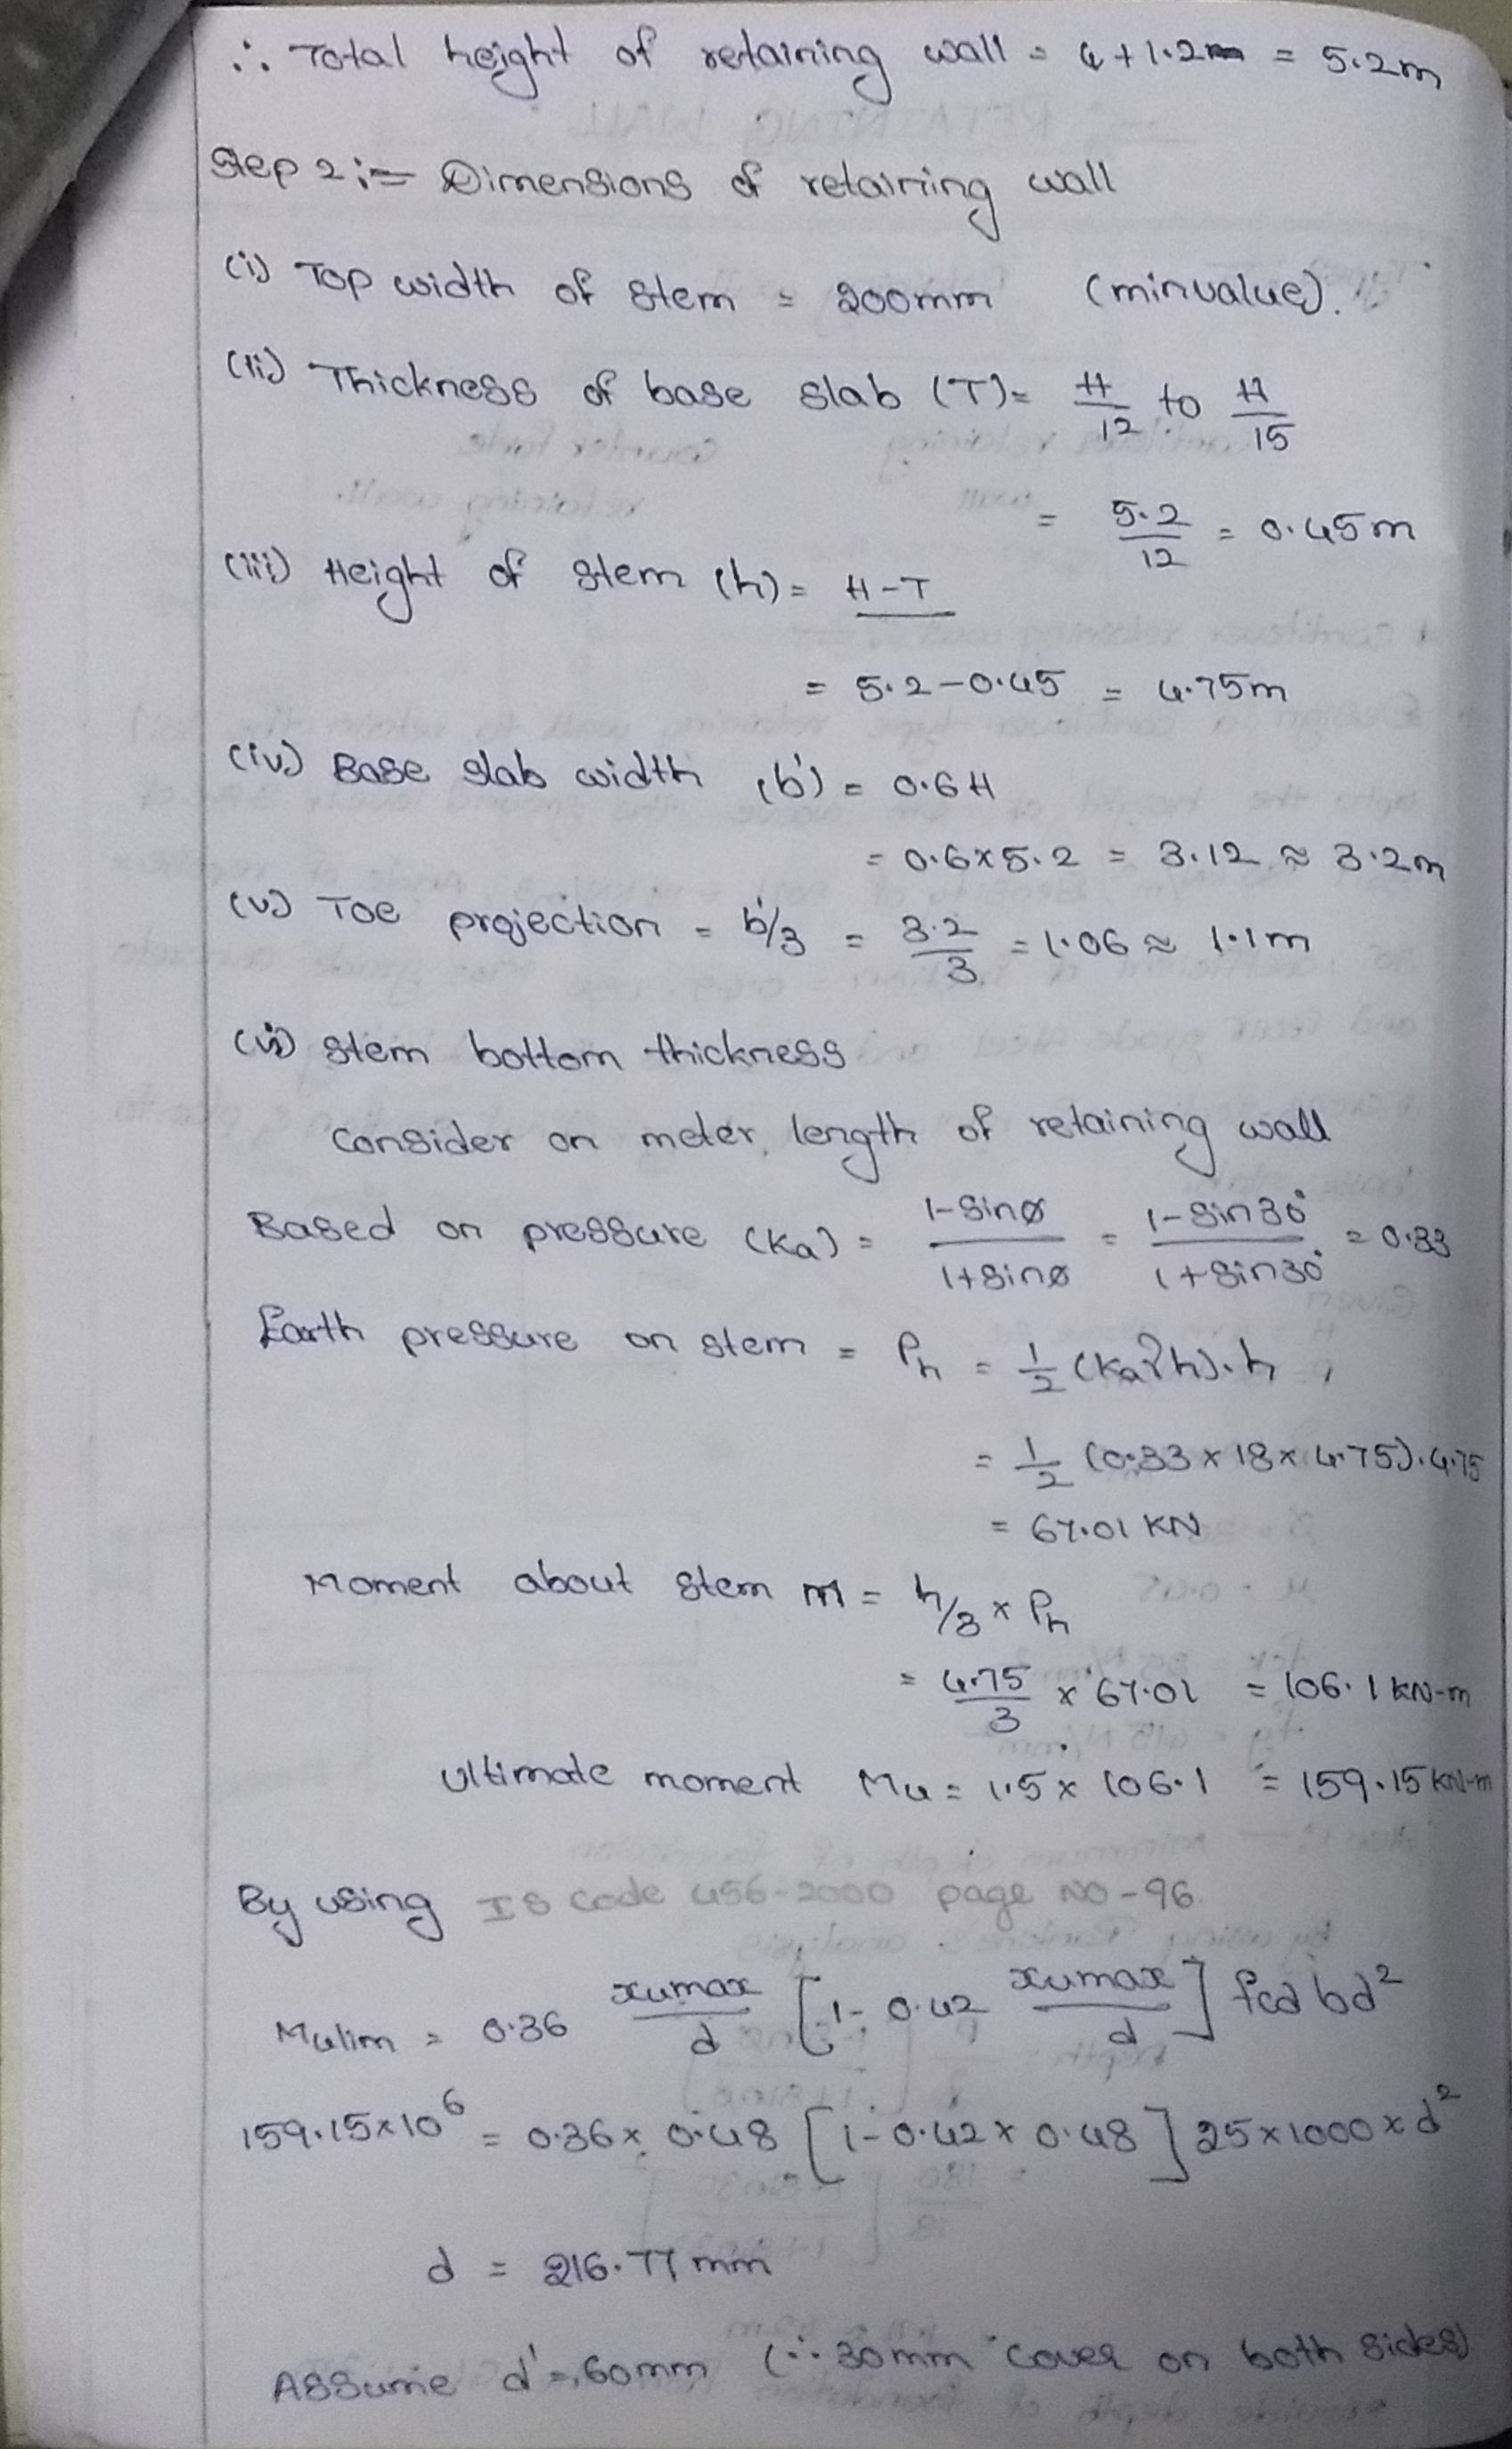 ∴ Total height of retaining wall = 4+1.2m = 5.2m
Step 2 :- Dimensions of retaining wall
(i) Top width of stem = 200mm (min value).
(ii) Thickness of base slab (T) = H/12 to H/15
= 5.2/12 = 0.45m
(iii) Height of stem (h) = H-T
= 5.2-0.45 = 4.75m
(iv) Base slab width (b') = 0.6H
= 0.6×5.2 = 3.12 ≈ 3.2m
(v) Toe projection = b'/3 = 3.2/3 = 1.06 ≈ 1.1m
(vi) Stem bottom thickness
Consider on meter length of retaining wall
Based on pressure (Ka) = 1-sinø/1+sinø = 1-sin30°/1+sin30° = 0.33
Earth pressure on stem = Ph = 1/2 (Kaγh).h
= 1/2 (0.33×18×4.75).4.75
= 67.01 KN
Moment about stem m = h/3 × Ph
= 4.75/3 × 67.01 = 106.1 KN-m
Ultimate moment Mu = 1.5× 106.1 = 159.15 KN-m
By using IS code 456-2000 page NO-96.
Mulim = 0.36 xumax/d [1- 0.42 xumax/d] fcd bd²
159.15×10⁶ = 0.36× 0.48 [1-0.42×0.48] 25×1000×d²
d = 216.77 mm
Assume d' = 60mm (∵ 30mm cover on both sides)